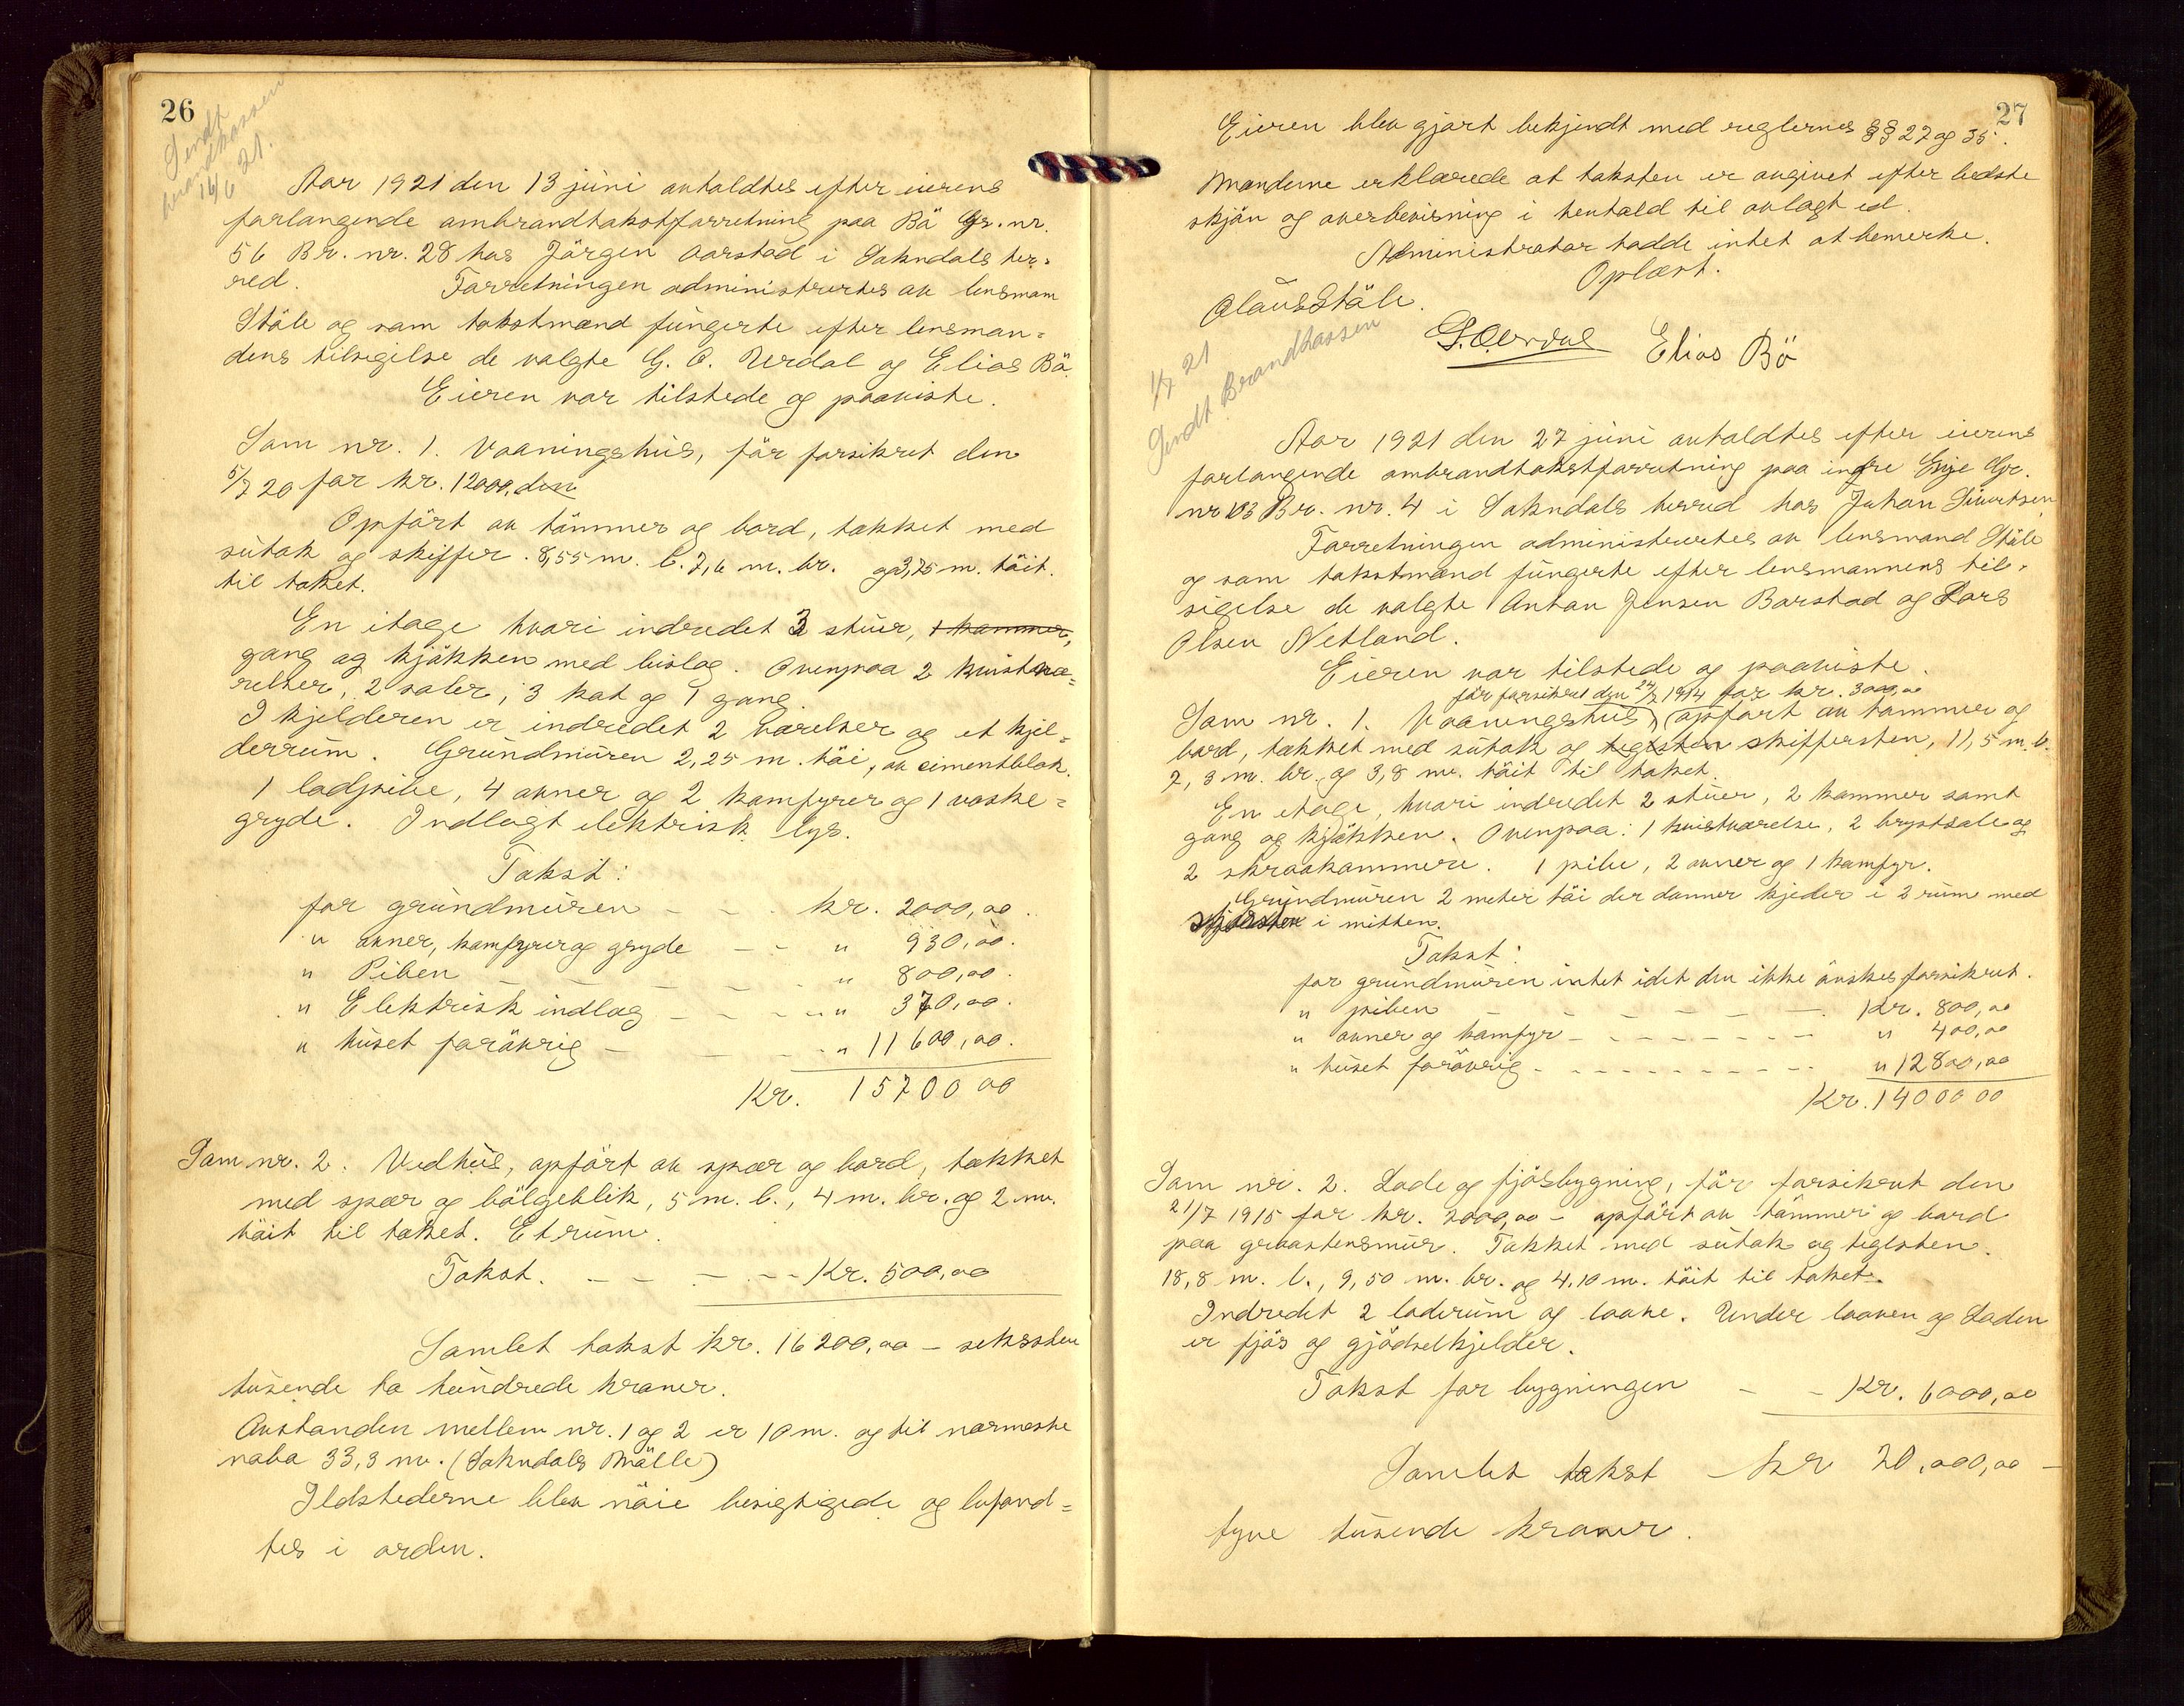 26
Sendt
brandkassen
16/6 21.
Aar 1921 den 13 juni avholdtes efter eierens
forlangende ombrandtakstforretning paa Bö Gr. nr.
56 Br. nr. 28 hos Jörgen Aarstad i Sokndals her-
red. Forretningen administrertes av lensmann
Ståle og som takstmænd fungerte efter lensman-
dens tilsigelse de valgte G. O. Urdal og Elias Bö.
Eieren var tilstede og paaviste.
Som nr. 1. Vaaningshus, för forsikret den
5/7 20 for kr. 12000, den
Opfört av tömmer og bord, tækket med
sutak og skiffer. 8,55 m. l. 7,6 m. br. og 3,75 m. höit.
til taket.
En etage hvori indredet 3 stuer, 1 kammer,
gang og kjökken med bislag. Ovenpaa 2 kvistvæ-
relser, 2 saler, 3 kot og 1 gang.
I kjelderen er indredet 2 værelser og et kjel-
derrum. Grundmuren 2,25 m. höi, av cimentblok.
1 lodpibe, 4 ovner og 2 komfyrer og 1 vaske-
gryde. Indlagt elektrisk lys.
Takst:
for grundmuren - - - kr. 2000,00.
" ovner, komfyrer og gryde - - " 930,00.
" Piben - - - - - " 800,00.
" Elektrisk indlag - - - - " 370,00.
" huset forövrig - - - - " 11600,00.
Kr. 15700 00
Som nr. 2. Vedhus, opfört av spær og bord, tækket
med spær og bölgeblik, 5 m. l., 4 m. br. og 2 m.
höit til taket. Et rum.
Takst. - - - - - Kr. 500,00
Samlet takst kr. 16200,00 - seksten
tusende to hundrede kroner.
Avstanden mellem nr. 1 og 2 er 10 m. og til nærmeste
nabo 33,3 m. (Sokndals Mölle)
Ildstederne blev nöie besigtigede og befand-
tes i orden.
27
Eieren blev gjort bekjendt med reglernes §§ 27 og 35.
Mændene erklærede at taksten er avgivet efter bedste
skjön og overbevisning i henhold til avlagt ed.
Administrator hadde intet at bemerke.
Oplæst.
Olaus Ståle.
G. O. Urdal Elias Bö
1/7 21
Sendt Brandkassen
Aar 1921 den 27 juni avholdtes efter eierens
forlangende ombrandtakstforretning paa indre Eige Gr.
nr 103 Br. nr. 4 i Sokndals herred hos Johan Sivertsen.
Forretningen administrertes av lensmand Ståle
og som takstmænd fungerte efter lensmannens til-
sigelse de valgte Anton Jensen Barstad og Lars
Olsen Netland.
Eieren var tilstede og paaviste.
för forsikret den 24/7 1914 for kr. 3000,00
Som nr. 1. Vaaningshus, opfört av tømmer og
bord, tækket med sutak og teglsten skiffersten, 11,5 m. l.
7,3 m. br. og 3,8 m. höit til taket.
En etage, hvori indredet 2 stuer, 2 kammer samt
gang og kjökken. Ovenpaa: 1 kvistværelse, 2 brystsale og
2 skraakammere. 1 pibe, 2 ovner og 1 komfyr.
Grundmuren 2 meter höi der danner kjelder i 2 rum med
i mitten.
Takst:
for grundmuren intet idet den ikke önskes forsikret.
" piben - - - - - - - Kr. 800,00
" ovner og komfyr - - - - - - - " 400,00
" huset forövrig - - - - - - - - - " 12800,00
Kr. 14000 00
Som nr. 2. Lade og fjösbygning, för forsikret den
21/7 1915 for kr. 2000,00 - opfört av tömmer og bord
paa graastensmur. Tækket med sutak og teglsten.
18,8 m. l., 9,50 m. br. og 4,10 m. höit til taket.
Indredet 2 laderum og laave. Under laaven og Laden
er fjös og gjödselkjelder.
Takst for bygningen - - Kr. 6000,00
Samlet takst - kr 20,000,00 -
tyve tusende kroner.